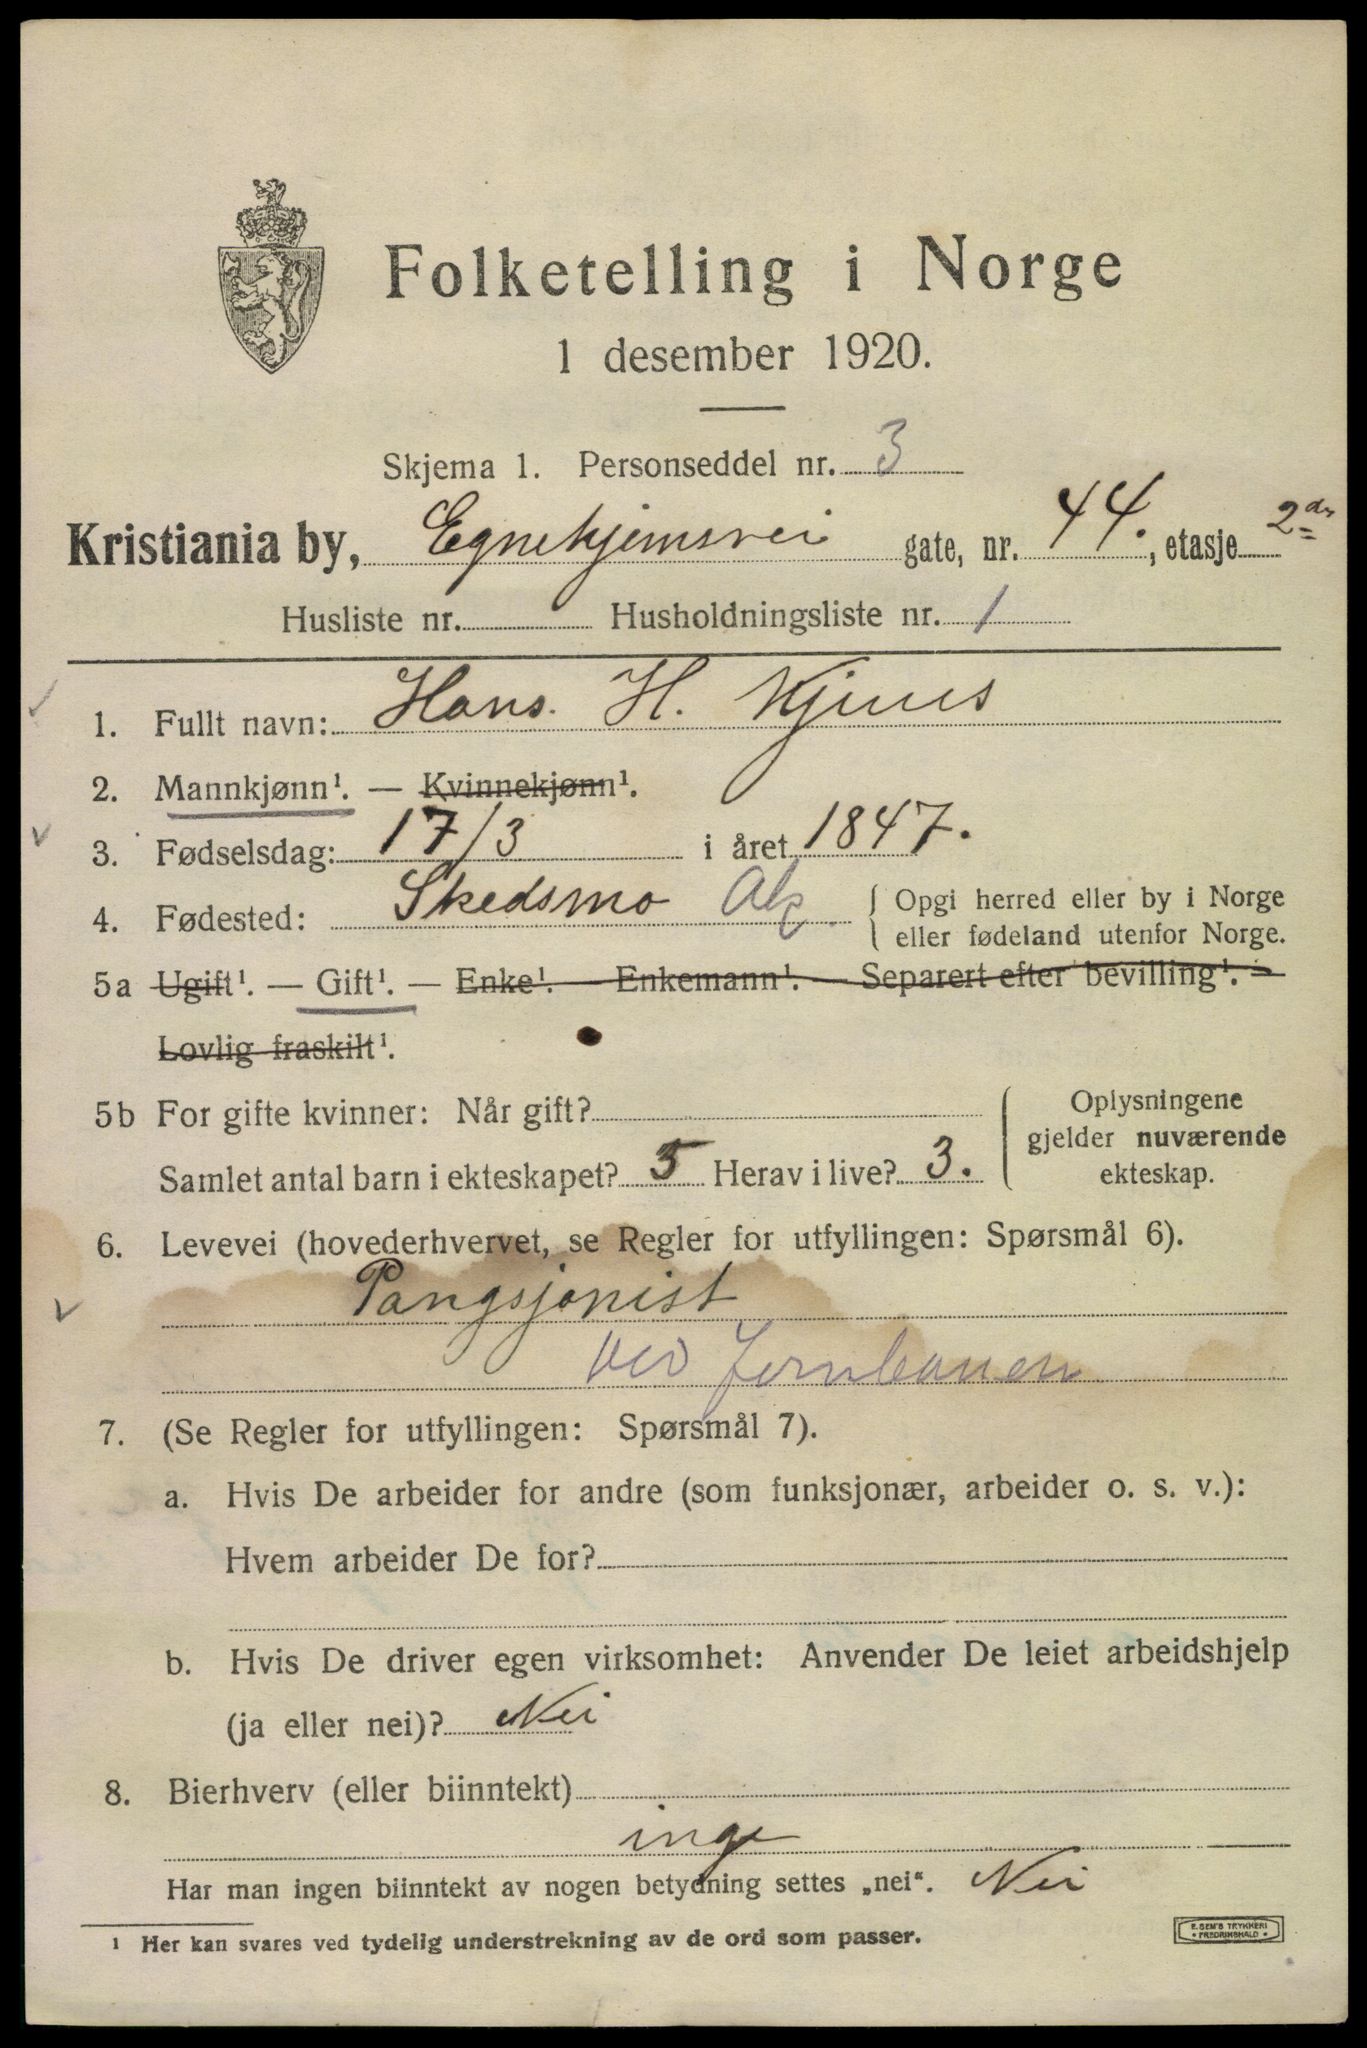 Folketelling i Norge
1 desember 1920.
Skjema 1. Personseddel nr. 3
Kristiania by, Egnehjemsvei gate, nr. 44., etasje 2den
Husliste nr. Husholdningsliste nr. 1
1. Fullt navn: Hans. H. Kjuus
2. Mannkjønn¹. — Kvinnekjønn¹.
3. Fødselsdag: 17/3 i året 1847.
4. Fødested: Skedsmo Ak. { Opgi herred eller by i Norge
eller fødeland utenfor Norge.
5a Ugift¹. — Gift¹. — Enke¹. — Enkemann¹. — Separert efter bevilling¹. —
Lovlig fraskilt¹.
5b For gifte kvinner: Når gift?
Samlet antal barn i ekteskapet? 5 Herav i live? 3.
{ Oplysningene
gjelder nuværende
ekteskap.
6. Levevei (hovederhvervet, se Regler for utfyllingen: Spørsmål 6).
Pangsjonist
ved Jernbanen
7. (Se Regler for utfyllingen: Spørsmål 7).
a. Hvis De arbeider for andre (som funksjonær, arbeider o. s. v.):
Hvem arbeider De for?
b. Hvis De driver egen virksomhet: Anvender De leiet arbeidshjelp
(ja eller nei)? Nei
8. Bierhverv (eller biinntekt)
inge
Har man ingen biinntekt av nogen betydning settes „nei“. Nei
¹ Her kan svares ved tydelig understrekning av de ord som passer.
E. SEM'S TRYKKERI
• FREDRIKSHALD •